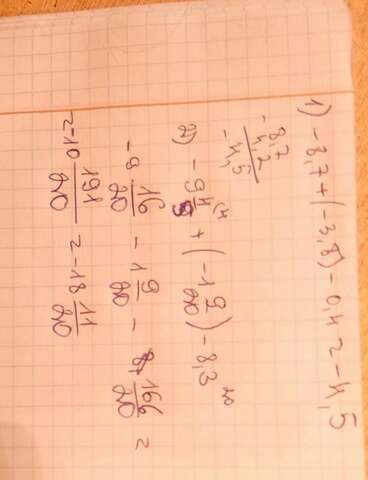 1) -8,7+(-3,8)-0,4=-4,5
8,7
-4,2
-4,5
2) -9 4/5 (4 + (-1 9/20) - 8,3 20
-9 16/20 - 1 9/20 - 8 166/20 =
=-10 191/20 = -18 11/20